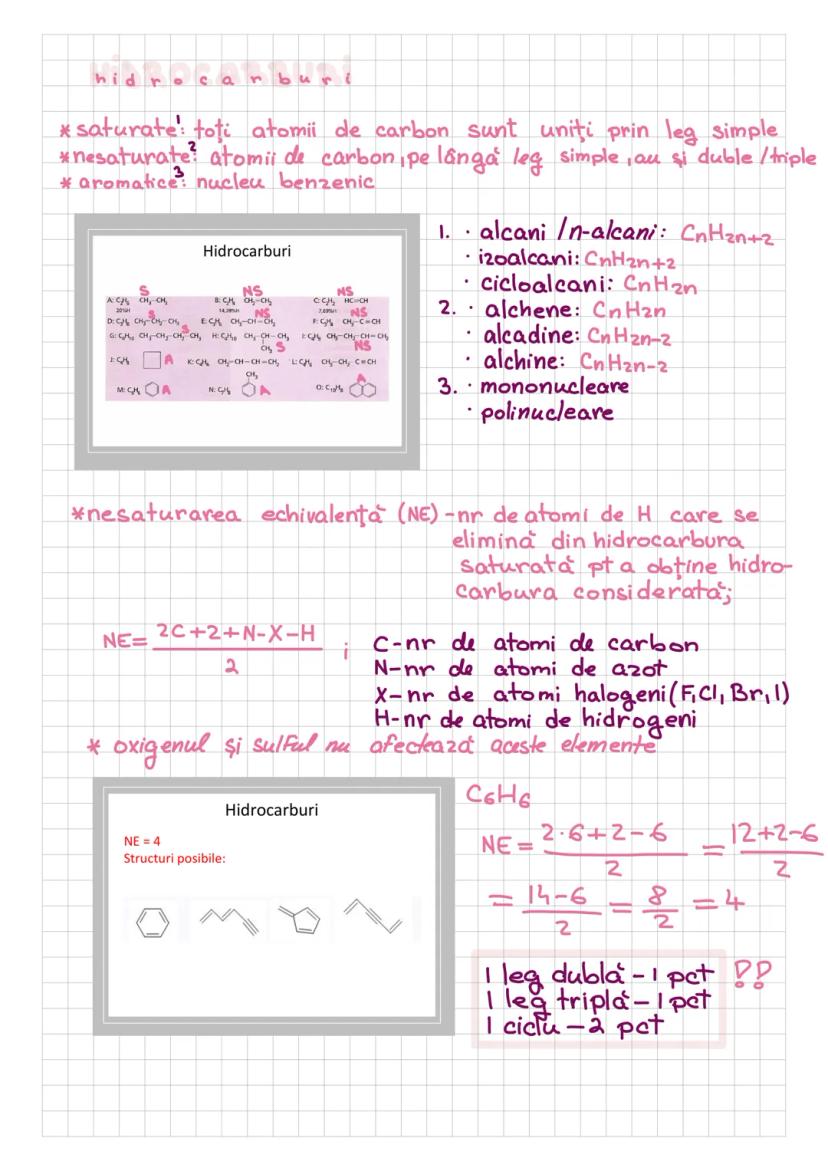 hidrocarburi
*saturate¹: toți atomii de carbon sunt uniți prin leg simple
*nesaturate²: atomii de carbon, pe lângă leg simple, au și duble/triple
* aromatice³: nucleu benzenic
Hidrocarburi
S NS NS
A: C₂H₆ CH₃-CH₃ B: C₂H₄ CH₂=CH₂ C: C₂H₂ HC≡CH
20%H 14,28%H 7,69%H
S NS NS
D: C₃H₈ CH₃-CH₂-CH₃ E: C₃H₆ CH₂=CH-CH₃ F: C₃H₄ CH₃-C≡CH
S
G: C₄H₁₀ CH₃-CH₂-CH₂-CH₃ H: C₄H₁₀ CH₃-CH-CH₃
CH₃ S NS
A
CH₃
M: C₆H₆ A A O: C₁₀H₈ A
1. · alcani /n-alcani: CnH2n+2
· izoalcani: CnH2n+2
· cicloalcani: CnH2n
2. · alchene: CnH2n
· alcadine: CnH2n-2
· alchine: CnH2n-2
3. · mononucleare
· polinucleare
*nesaturarea echivalentă (NE) -nr de atomi de H care se
elimină din hidrocarbura
saturată pt a obține hidro-
carbura considerată;
NE= 2C+2+N-X-H / 2 ;
C-nr de atomi de carbon
N-nr de atomi de azot
X-nr de atomi halogeni(F,Cl, Br, I)
H-nr de atomi de hidrogeni
* oxigenul și sulful nu afectează aceste elemente
Hidrocarburi
NE = 4
Structuri posibile:
C6H6
NE = 2·6+2-6 / 2 = 12+2-6 / 2
= 14-6 / 2 = 8 / 2 = 4
1 leg dublă - 1 pct !!
1 leg triplă - 1 pct
1 ciclu - 2 pct